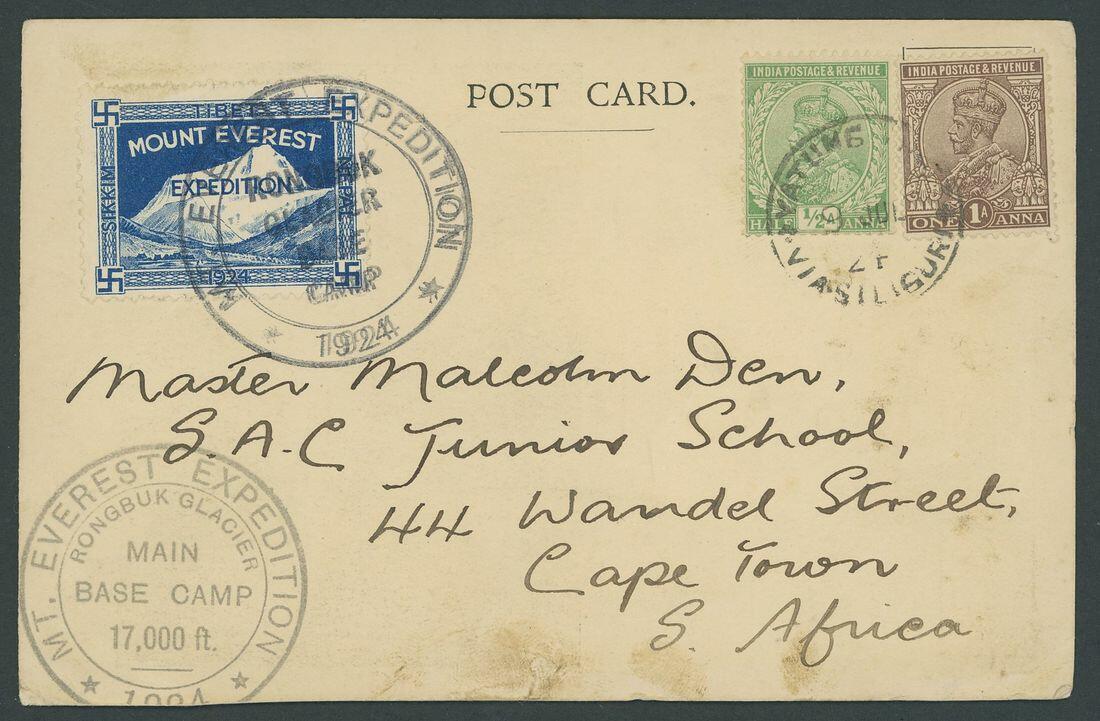 POST CARD.
TIBET
MOUNT EVEREST
EXPEDITION
SIKKIM
NEPAL
1924
EXPEDITION
RONGBUK
GLACIER
BASE
CAMP
1924
INDIA POSTAGE & REVENUE
HALF ½A ANNA
INDIA POSTAGE & REVENUE
ONE 1A ANNA
YATUNG
JUL
VIA SILIGURI
Master Malcolm Den,
S.A.C Junior School,
44 Wandel Street,
Cape Town
S. Africa
MT. EVEREST EXPEDITION
RONGBUK GLACIER
MAIN
BASE CAMP
17,000 ft.
1924